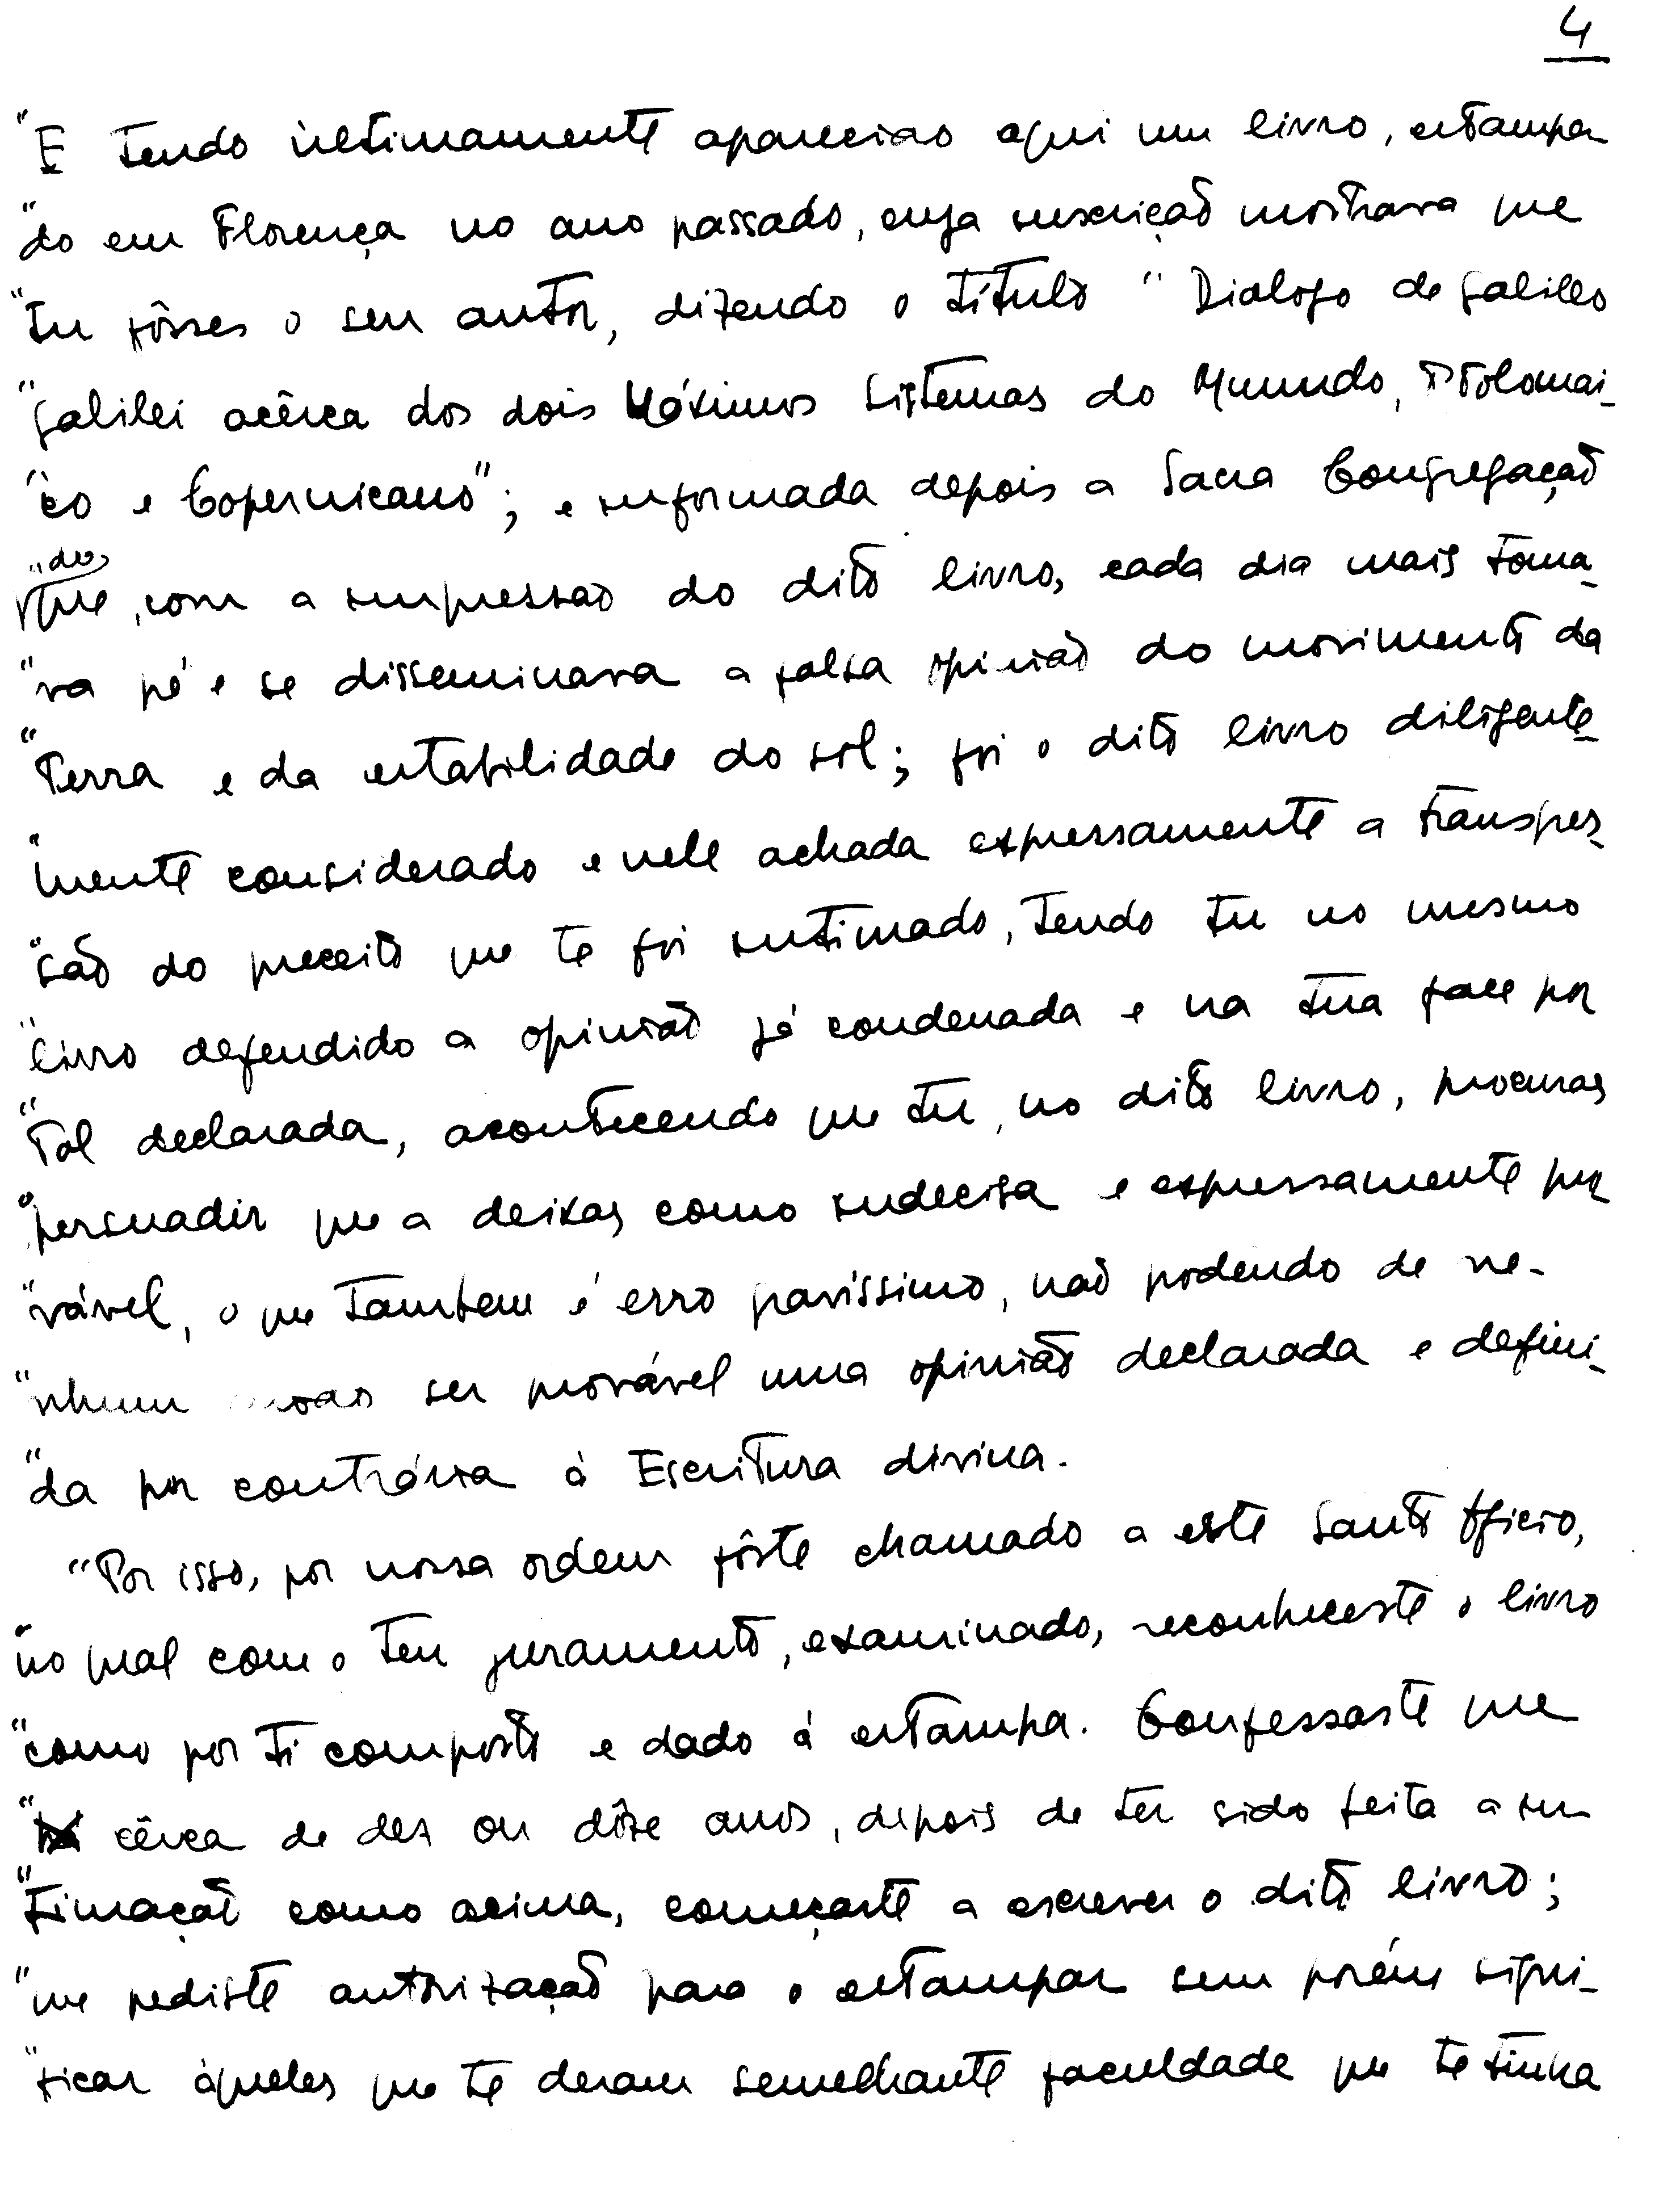 4
"E tendo ùltimamente aparecido aqui um livro, estampa-
"do em Florença no ano passado, cuja inscrição mostrava que
"tu fôsses o seu autor, dizendo o título "Dialogo de Galileo
"Galilei acêrca dos dois Máximos Sistemas do Mundo, Ptolomai-
"co e Copernicano"; e informada depois a Sacra Congregação
"do
que, com a impressão do dito livro, cada dia mais toma-
"va pé e se disseminava a falsa opinião do movimento da
"Terra e da estabilidade do sol; foi o dito livro diligente-
"mente considerado e nele achada expressamente a transgres-
"são do preceito que te foi intimado, tendo tu no mesmo
"livro defendido a opinião já condenada e na tua face por
"tal declarada, acontecendo que tu, no dito livro, procuras
"persuadir que a deixas como indecisa e expressamente pro
"vável, o que tambem é erro gravíssimo, não podendo de ne-
"nhum modo ser provável uma opinião declarada e defini-
"da por contrária à Escritura divina.
"Por isso, por nossa ordem fôste chamado a este Santo Ofício,
"no qual com o teu juramento, examinado, reconheceste o livro
"como por ti composto e dado à estampa. Confessaste que
"cêrca de dez ou dôze anos, depois de ter sido feita a in-
"timação como acima, começaste a escrever o dito livro;
"que pediste autorização para o estampar sem porém signi-
"ficar àqueles que te deram semelhante faculdade que te tinha